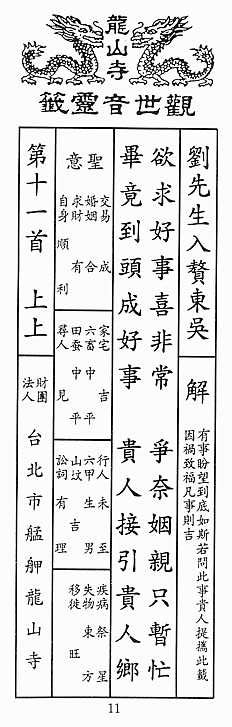 龍山寺
觀世音靈籤
劉先生入贅東吳
解
有事盼望到底如斯若問此事貴人提攜此籤
因禍致福凡事則吉
欲求好事喜非常 爭奈姻親只暫忙
畢竟到頭成好事 貴人接引貴人鄉
聖意
交易 成
婚姻 合
求財 有
自身 順 利
家宅 吉
六畜 中 平
田蚕 中 平
尋人 見
行人 未 至
六甲 生 男
山坟 吉
訟詞 有 理
疾病 祭 星
失物 東 方
移徙 旺
第十一首 上上
財團
法人
台北市艋舺龍山寺
11